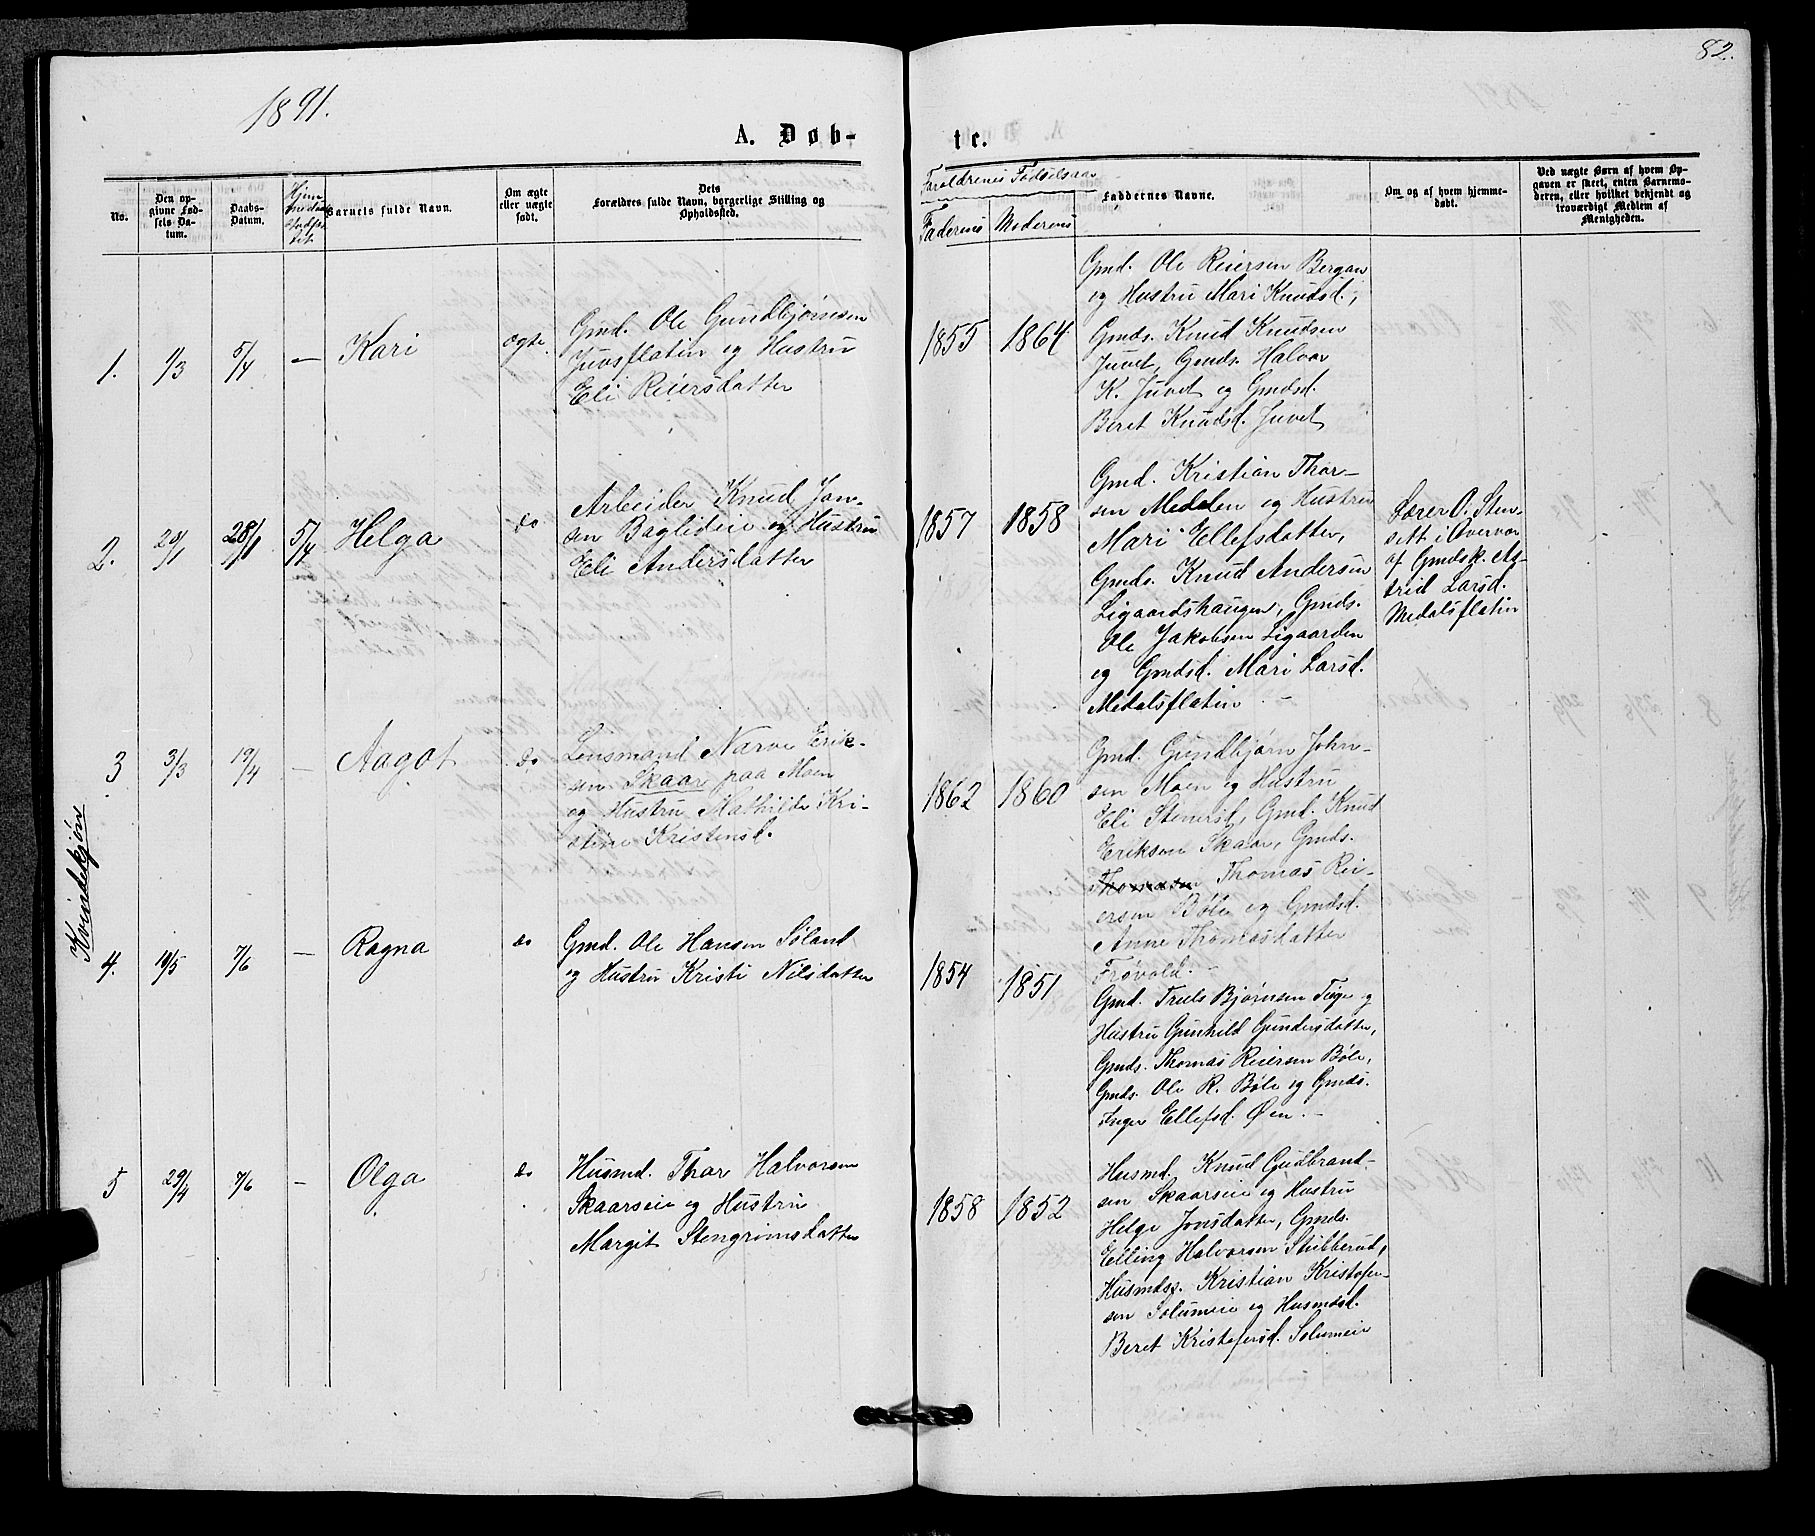 82.
1891.
A. Døb-
te.
No.
Den op-
givne Fød-
sels Da-
tum.
Daabs-
Datum.
Barnets fulde Navn.
Om ægte
eller uægte
født.
Dets
Forældres fulde Navn, borgerlige Stilling og
Opholdsted.
Forældrenes Fødselsaar
Faderens
Moderens
Faddernes Navne.
Om og af hvem hjemme-
døbt.
Ved uægte Børn af hvem Op-
gaven er skeet, enten Barnemo-
deren, eller hvilket bekjendt og
troværdigt Medlem af
Menigheden.
Kvindekjøn
1.
1/3
5/4
—
Kari
ægte
Gmd. Ole Gundbjørnsen
Juvsflatin og Hustru
Eli Reiersdatter
1855
1864
Gmd. Ole Reiersen Bergan
og Hustru Mari Knudsd.,
Gmds. Knud Knudsen
Juvet, Gmds. Halvor
K. Juvet og Gmdsd.
Beret Knudsd. Juvet
2.
28/1
5/4
Helga
do
Arbeider Knud Jon-
sen Baglideie og Hustru
Eli Andersdatter
1857
1858
Gmd. Kristian Thor-
sen Medalen og Hustru
Mari Ellefsdatter,
Gmds. Knud Andersen
Ligaardshaugen, Gmds.
Ole Jakobsen Ligaarden
og Gmdsd. Mari Larsd.
Medalsflatin. —
Lærer O. Sten-
sett i Overvær
af Gmdsk. As-
trid Larsd.
Medalsflatin
3
3/3
19/4
—
Aagot
do
Lensmand Narve Erik-
sen Skaar paa Moen
og Hustru Mathilde Kri-
stine Kristensd.
1862
1860
Gmd. Gundbjørn John-
sen Moen og Hustru
Eli Stenersd, Gmd. Knud
Eriksen Skaar, Gmds.
Thomas Rei-
ersen Bøle og Gmdsd.
Anne Thomasdatter
Frøvold. —
4.
19/5
7/6
—
Ragna
do
Gmd. Ole Hansen Søland
og Hustru Kristi Nilsdatter
1854
1851
Gmd. Truls Bjørnsen Tuge og
Hustru Gunhild Gundersdatter,
Gmds. Thomas Reiersen Bøle,
Gmds. Ole R. Bøle og Gmds.
Inger Ellefsd. Øen. —
5
29/4
7/6
—
Olga
do
Husmd. Thor Halvorsen
Skaarseie og Hustru
Margit Stengrimsdatter
1858
1852
Husmd. Knud Gudbrand-
sen Skaarseie og Hustru
Helge Jonsdatter, Gmds.
Elling Halvorsen Stubberud,
Husmdss. Kristian Kristofer-
sen Solumeie og Husmdsd.
Beret Kristofersd. Solumeie